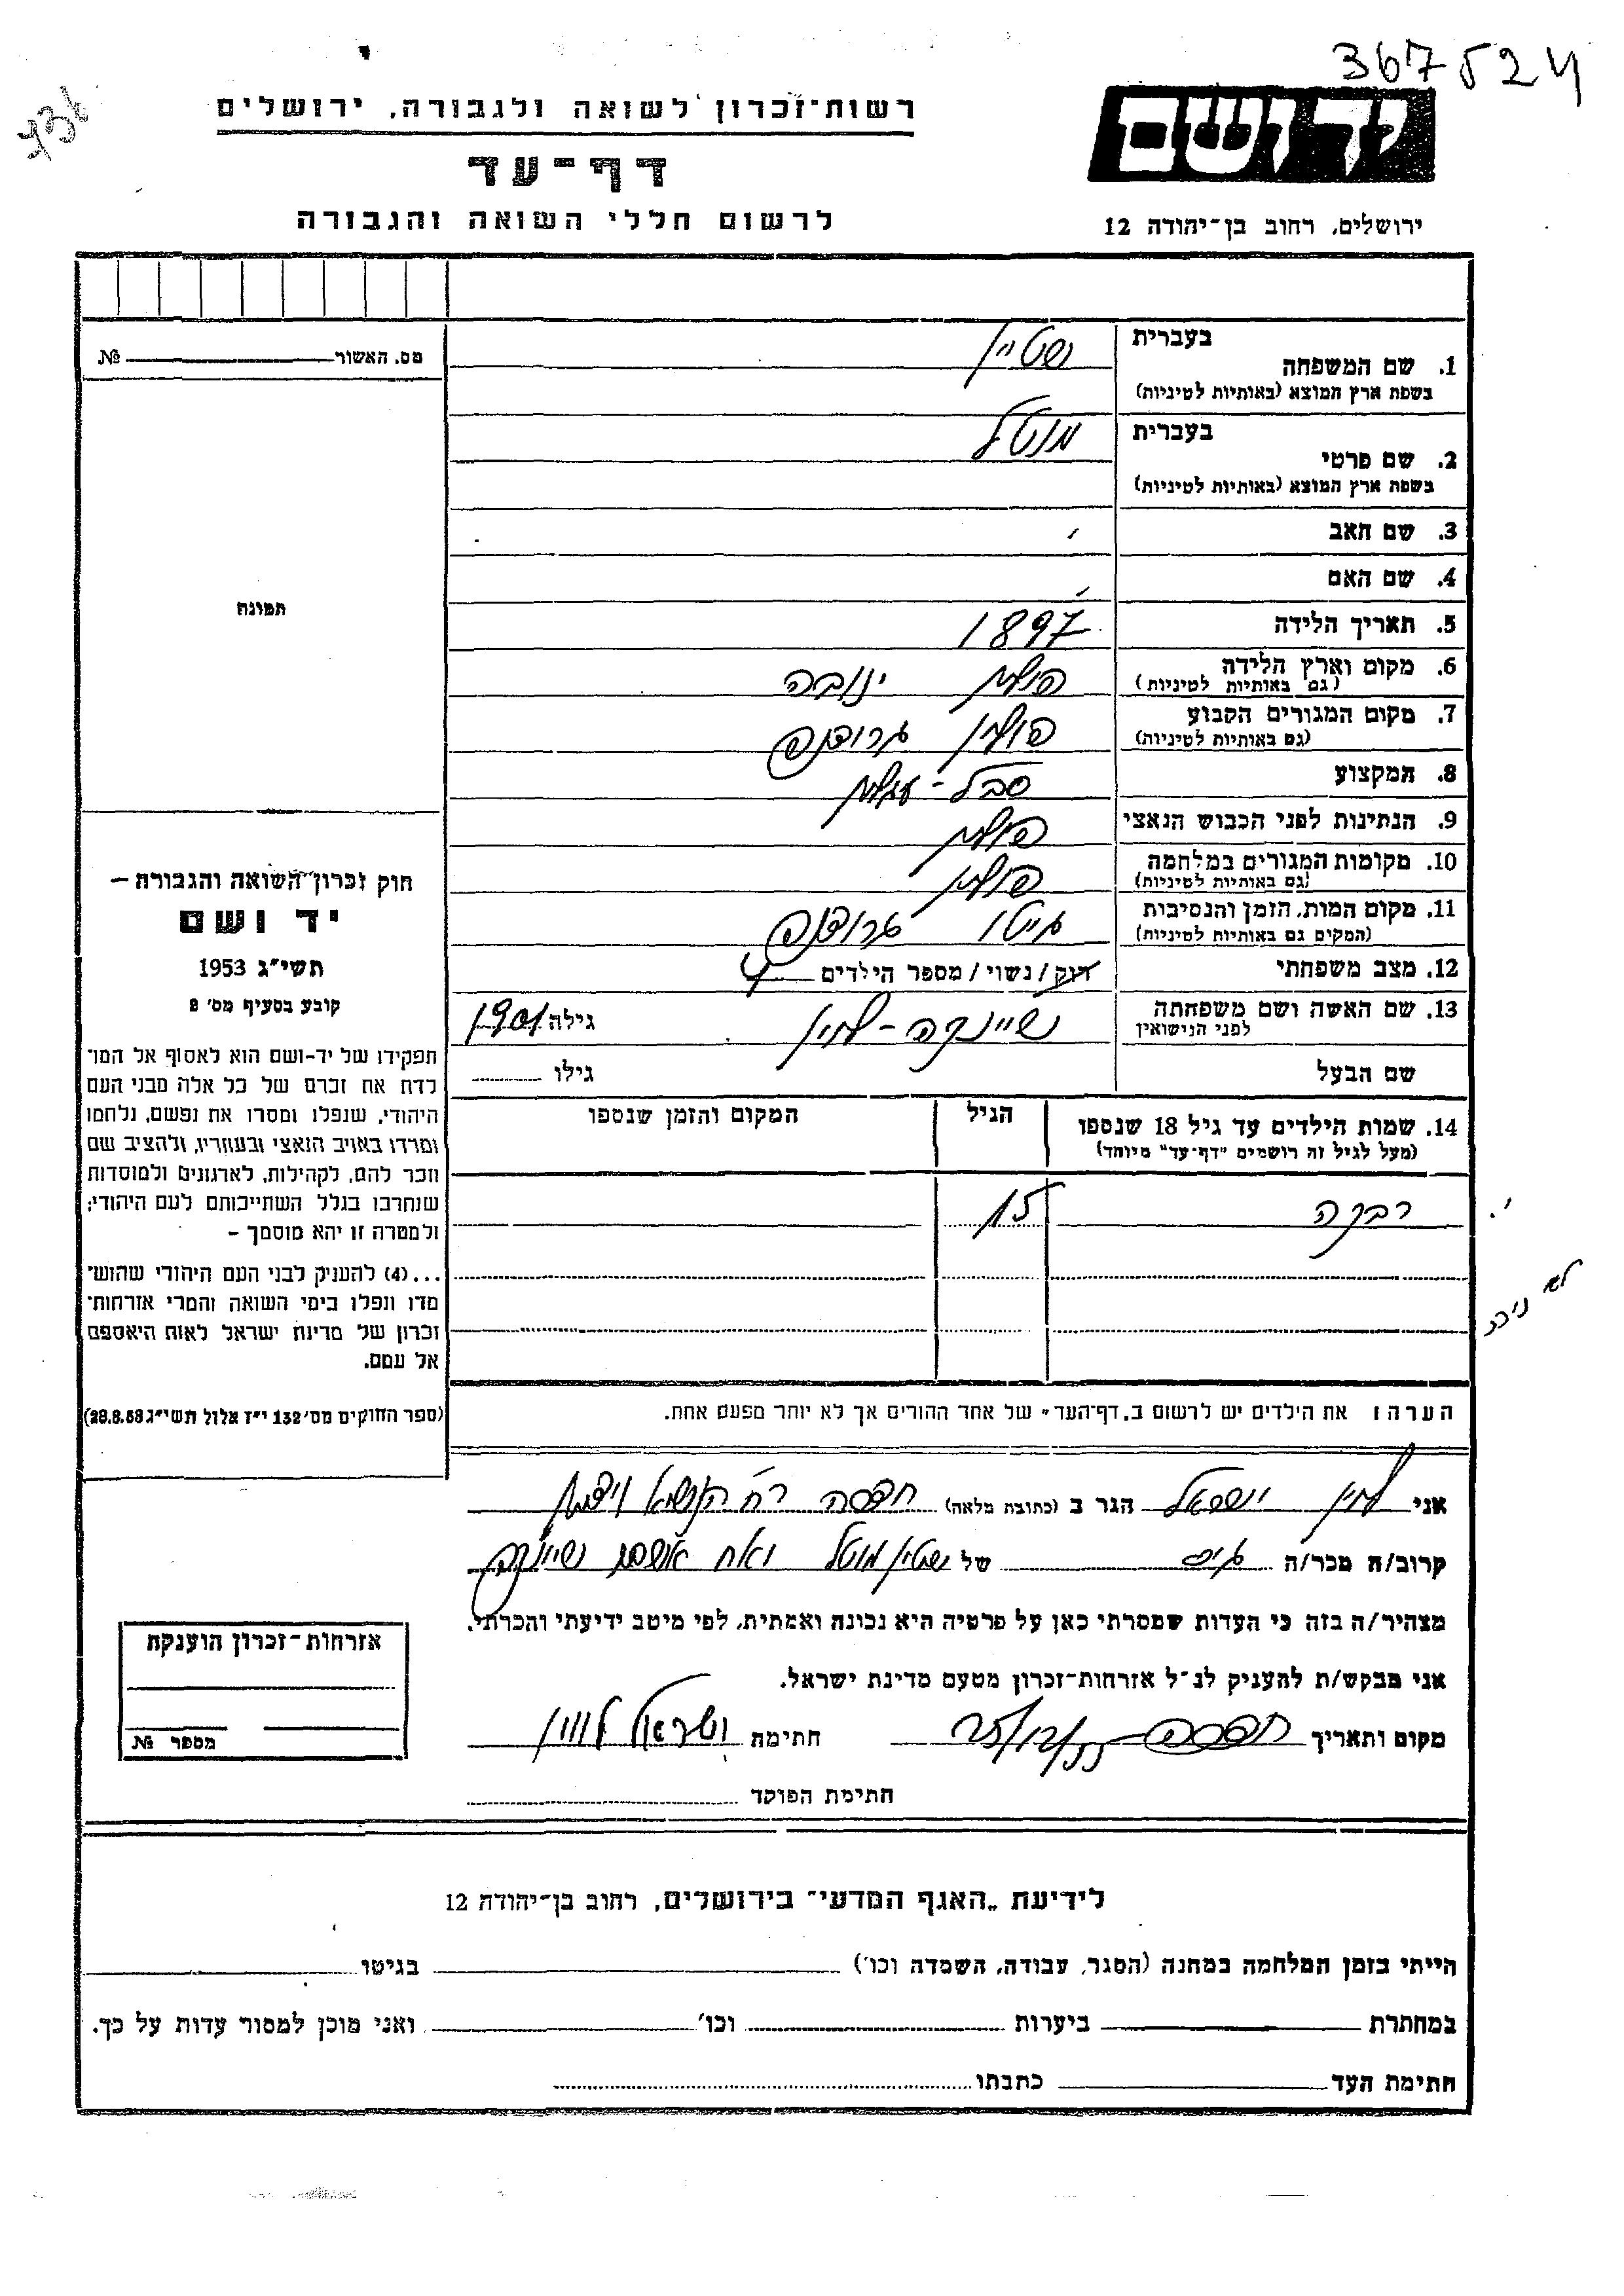 367524
רשות־זכרון לשואה ולגבורה, ירושלים
ידושם
דף־עד
לרשום חללי השואה והגבורה
ירושלים, רחוב בן־יהודה 12
מס. האשור № 
בעברית
1. שם המשפחה שטיין
בשפת ארץ המוצא (באותיות לטיניות)
בעברית
2. שם פרטי מוטל
בשפת ארץ המוצא (באותיות לטיניות)
3. שם האב
4. שם האם
תמונה
5. תאריך הלידה 1897
6. מקום וארץ הלידה פולין ינובה
(גם באותיות לטיניות)
7. מקום המגורים הקבוע פולין
(גם באותיות לטיניות)
8. המקצוע סבל - עגלון
9. הנתינות לפני הכבוש הנאצי פולין
10. מקומות המגורים במלחמה פולין
(גם באותיות לטיניות)
11. מקום המות, הזמן והנסיבות גיטו
(המקום גם באותיות לטיניות)
12. מצב משפחתי רוק / נשוי / מספר הילדים
13. שם האשה ושם משפחתה שיינקה - לוין גילה 1901
לפני הנישואין
שם הבעל גילו
14. שמות הילדים עד גיל 18 שנספו הגיל המקום והזמן שנספו
(מעל לגיל זה רושמים "דף־עד" מיוחד)
רבקה 15
חוק זכרון השואה והגבורה –
יד ושם
תשי״ג 1953
קובע בסעיף מס׳ 2
תפקידו של יד-ושם הוא לאסוף אל המו־
לדת את זכרם של כל אלה מבני העם
היהודי, שנפלו ומסרו את נפשם, נלחמו
ומרדו באויב הנאצי ובעוזריו, ולהציב שם
וזכר להם, לקהילות, לארגונים ולמוסדות
שנחרבו בגלל השתייכותם לעם היהודי;
ולמטרה זו יהא מוסמך –
...(4) להעניק לבני העם היהודי שהוש־
מדו ונפלו בימי השואה והמרי אזרחות־
זכרון של מדינת ישראל לאות היאספם
אל עמם.
(ספר החוקים מס׳ 132 י״ז אלול תשי״ג 28.8.53)
הערה: את הילדים יש לרשום ב„דף־העד״ של אחד ההורים אך לא יותר מפעם אחת.
אני לוין ישראל הגר ב (כתובת מלאה) חיפה רח הנשיא
קרוב/ה מכר/ה גיס של שטיין מוטל ואח אשתו שיינקה
מצהיר/ה בזה כי העדות שמסרתי כאן על פרטיה היא נכונה ואמתית, לפי מיטב ידיעתי והכרתי.
אני מבקש/ת להעניק לנ״ל אזרחות־זכרון מטעם מדינת ישראל.
מקום ותאריך חיפה 25/12/55 חתימה ישראל לוין
חתימת הפוקד
אזרחות־זכרון הוענקה
מספר №
לידיעת „האגף המדעי״ בירושלים, רחוב בן־יהודה 12
הייתי בזמן המלחמה במחנה (הסגר, עבודה, השמדה וכו׳) בגיטו
במחתרת ביערות וכו׳ ואני מוכן למסור עדות על כך.
חתימת העד כתבתו